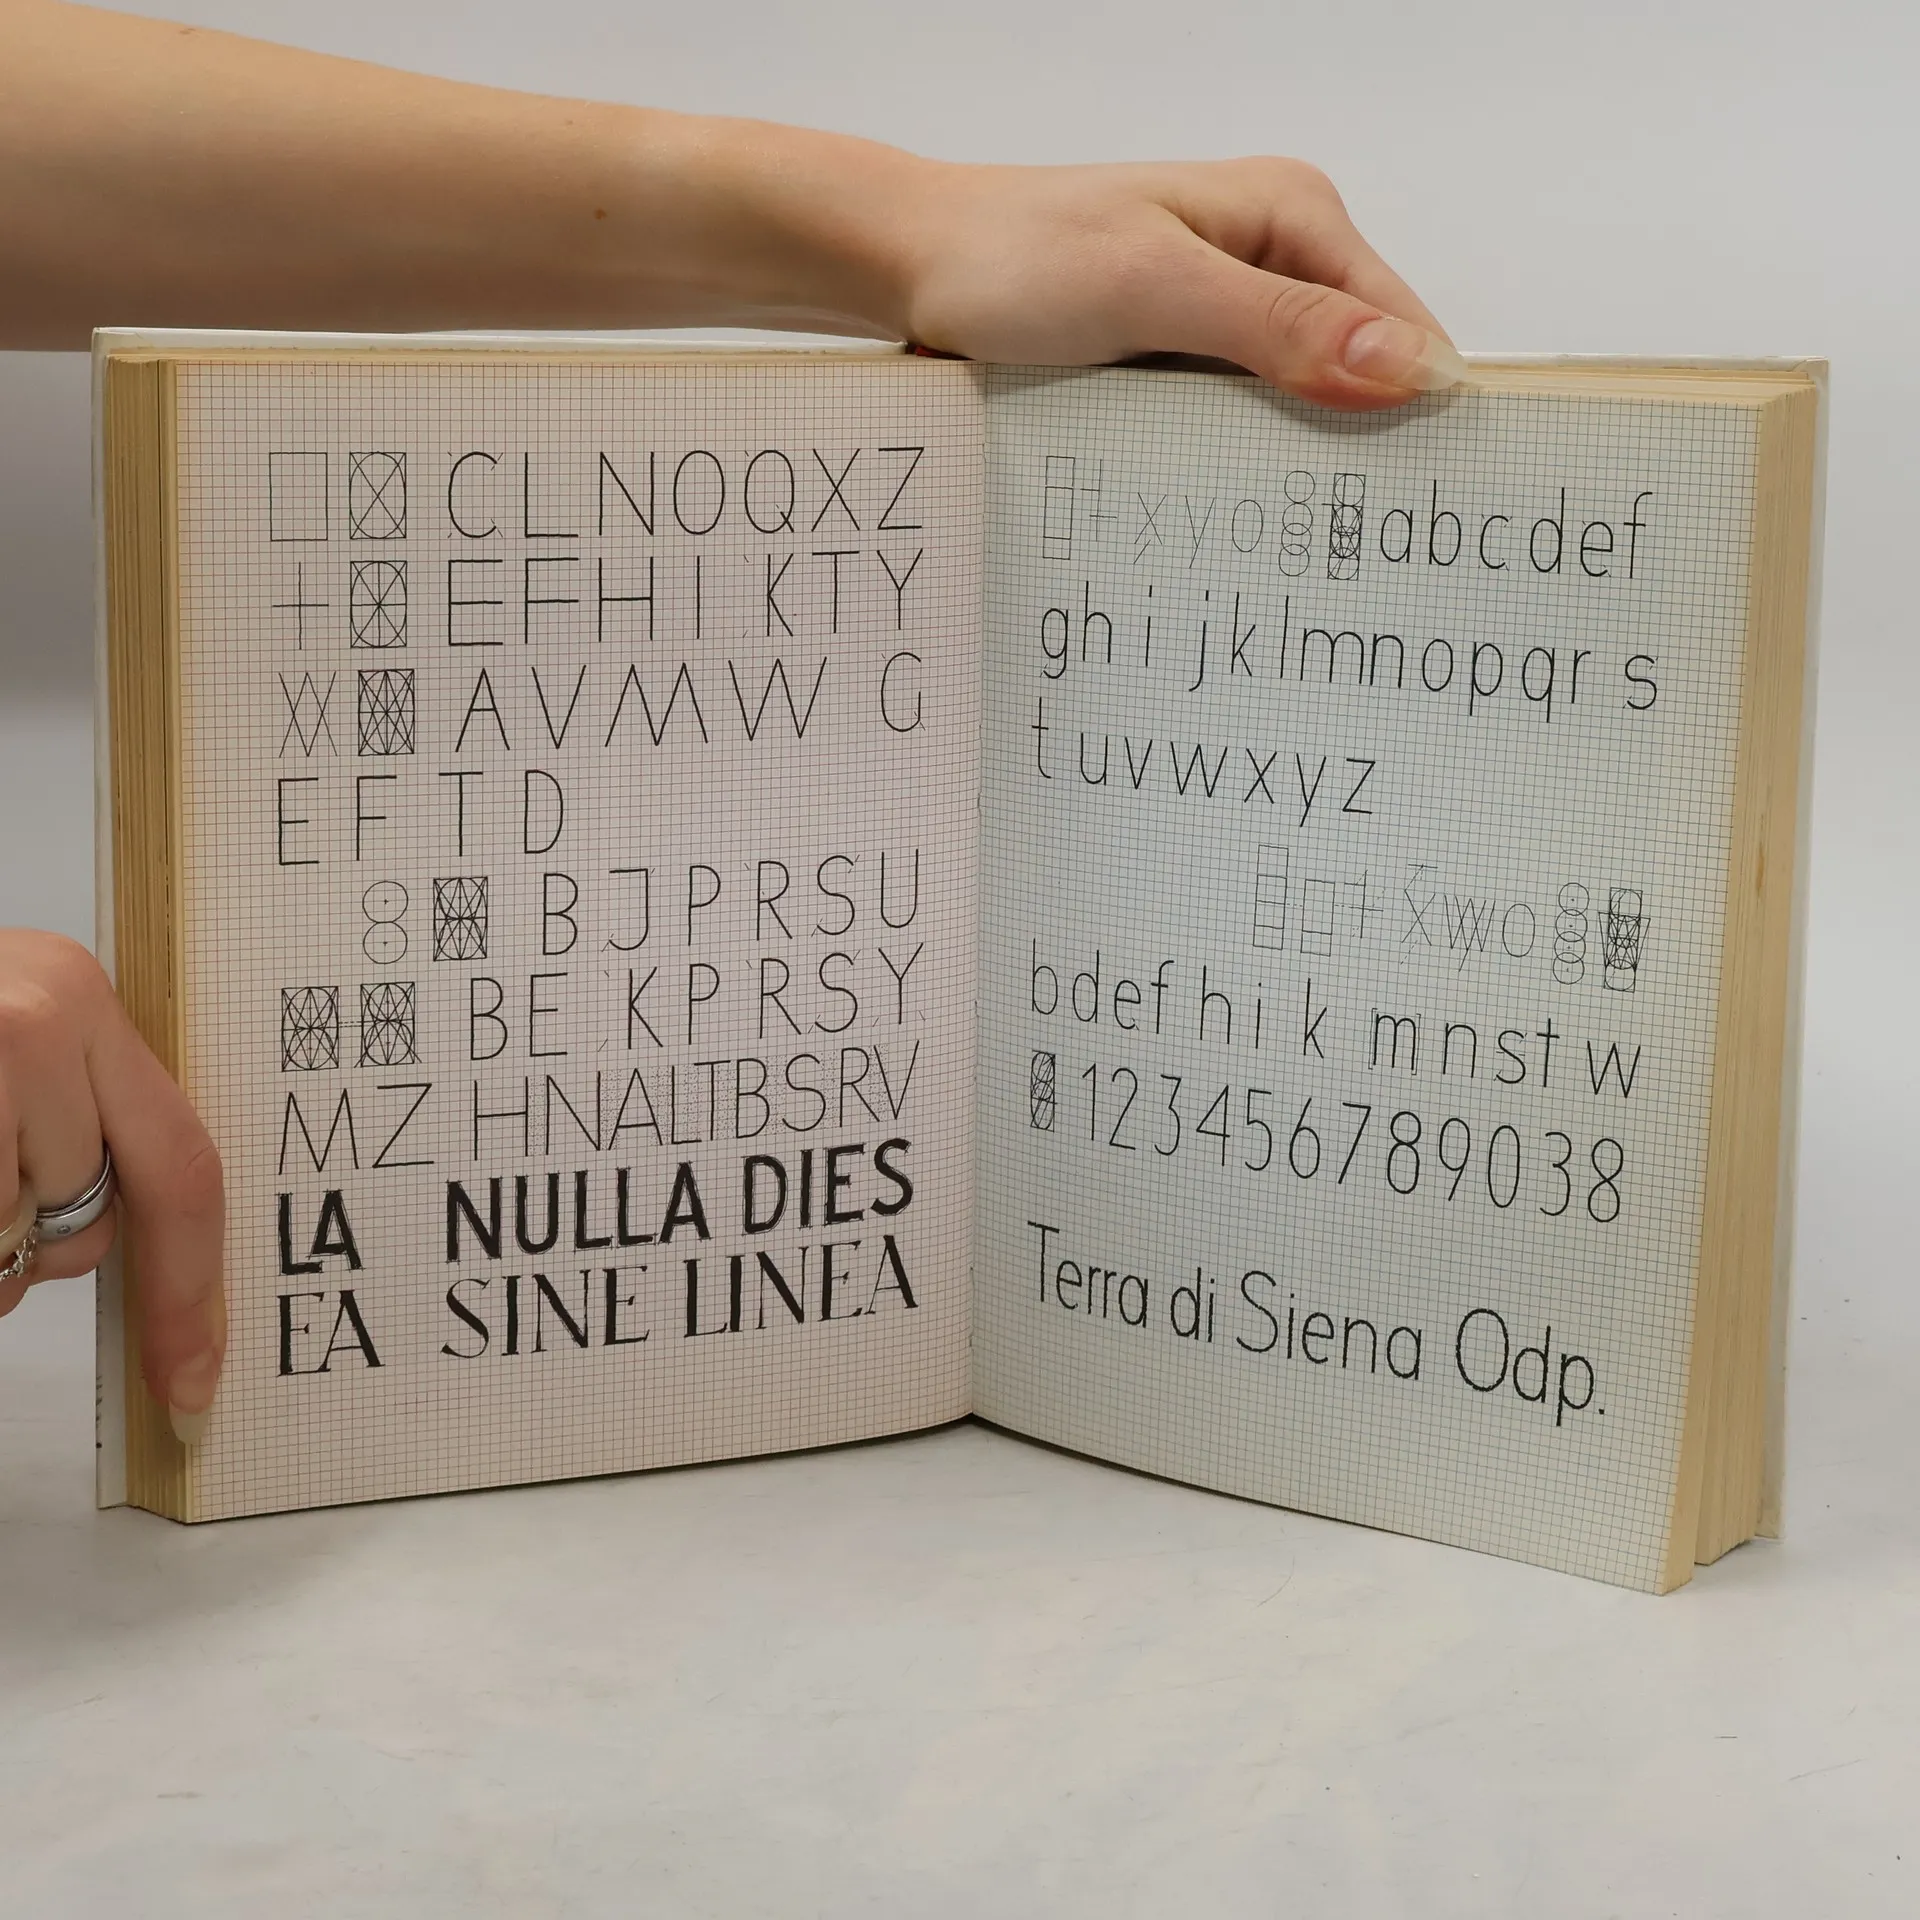 CLNOQXZ
EFHIKTY
AVMW G
EFTD
BJPRSU
BE KPRSY
MZ HNALTBSRV
LA NULLA DIES
EA SINE LINEA
xyo abcdef
ghijklmnopqrs
tuvwxyz
xwo
bdefhik mnstw
123456789038
Terra di Siena Odp.